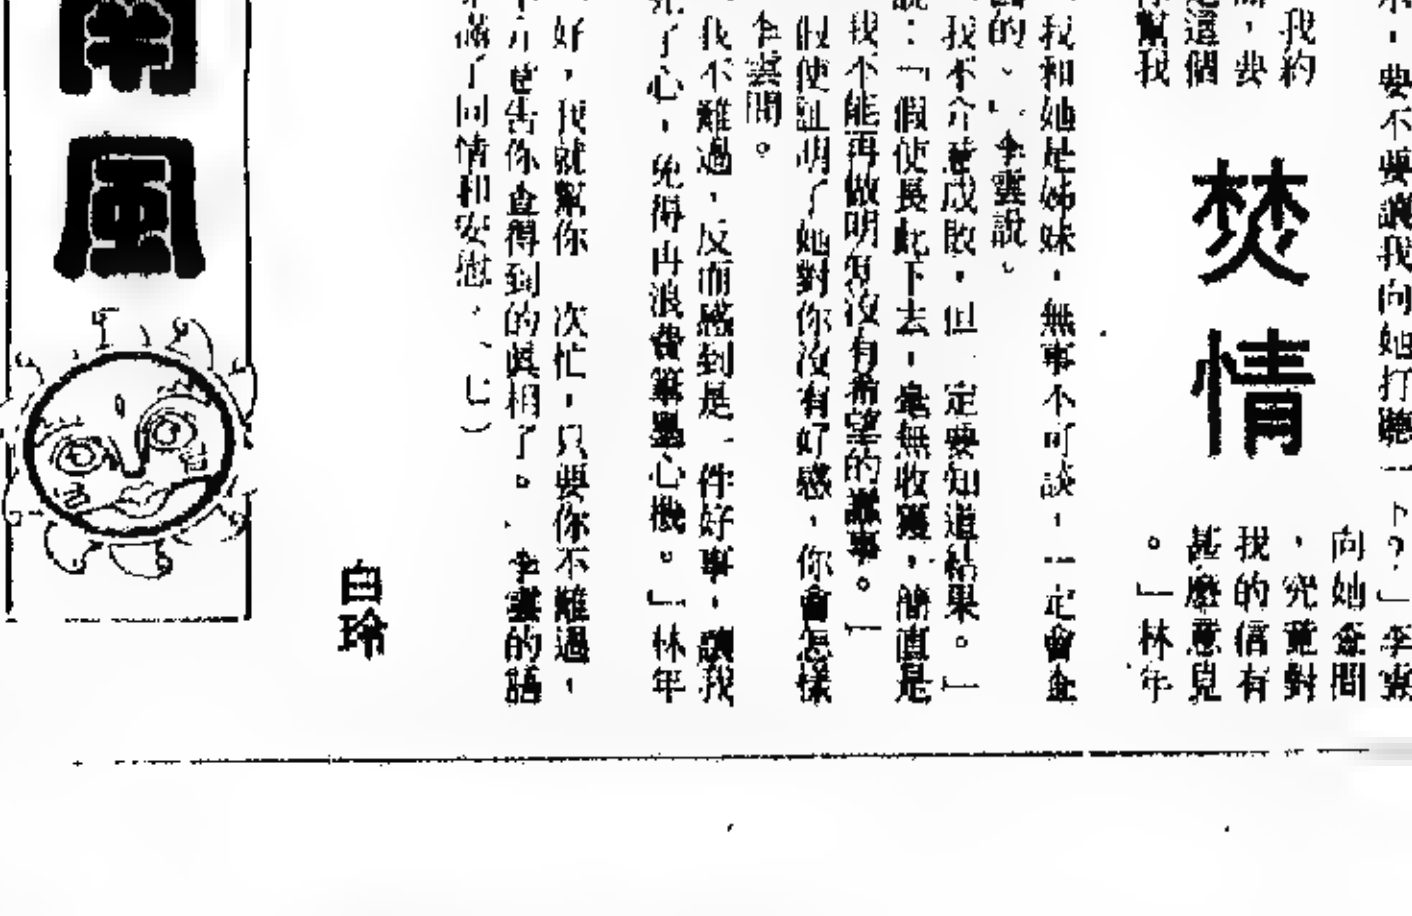 求，要不要讓我向她打聽一下？」李雲
向她查問
我約，究竟對
，要我的信有
這個甚麼意見
你幫我。」林年
焚情
我和她是姊妹，無事不可談，一定會查
的。」李雲說。
我不介意成敗，但一定要知道結果。」
說：「假使長此下去，毫無收穫，簡直是
我不能再做明知沒有希望的蠢事。」
假使証明了她對你沒有好感，你會怎樣
李雲問。
我不難過，反而感到是一件好事，讓我
死了心，免得再浪費筆墨心機。」林年
好，我就幫你一次忙，只要你不難過，
告你查得到的真相了。」李雲的語
滿了同情和安慰。（七）
白玲
南風